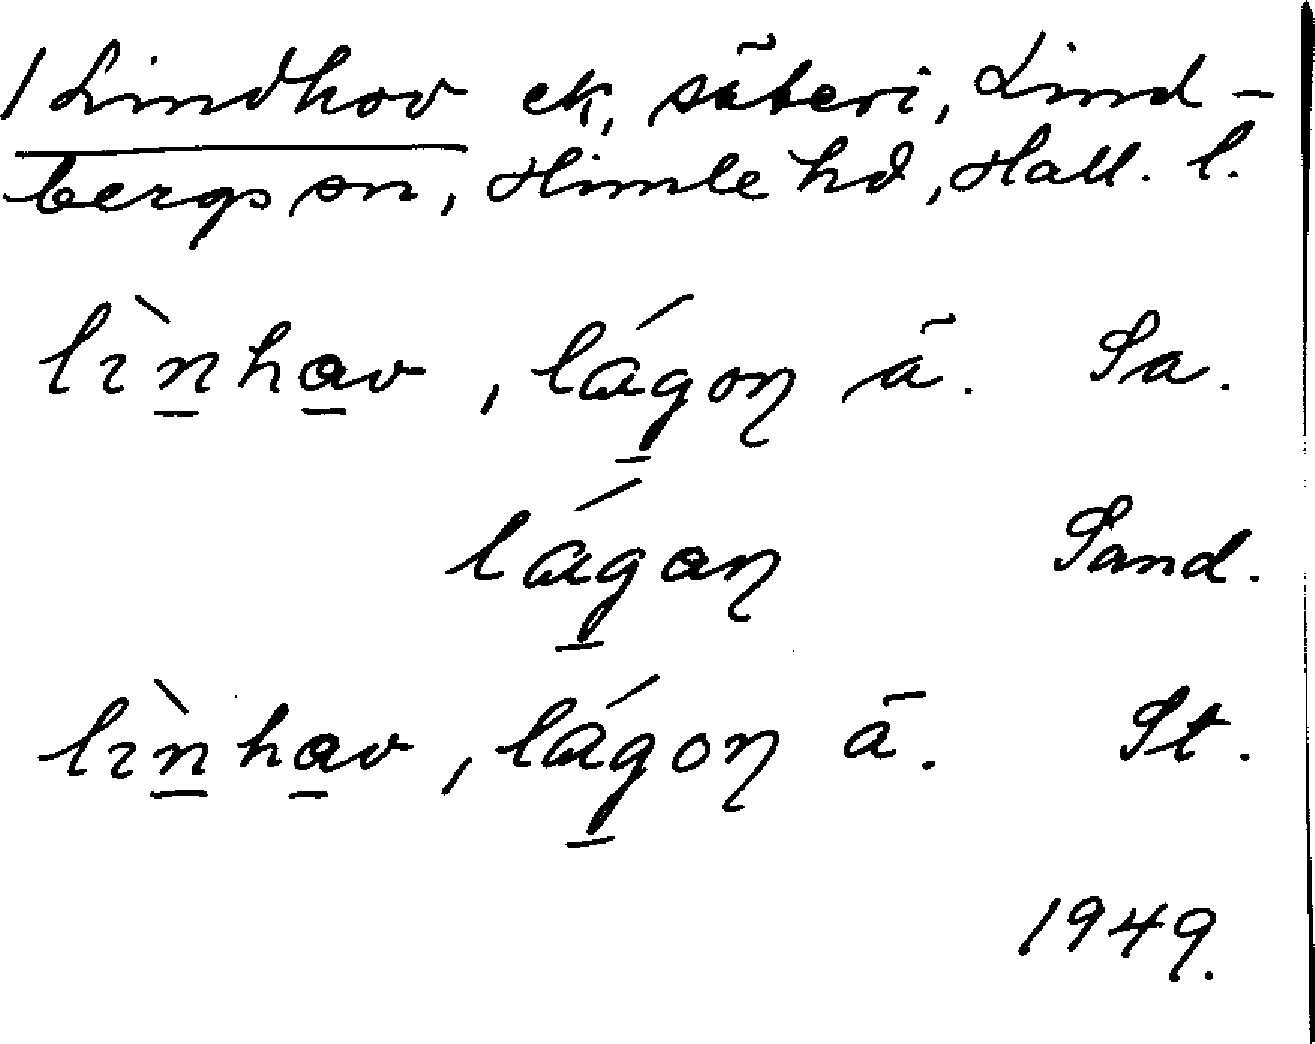 1 Lindhov ek, säteri, Lind-
bergs sn, Himle hd, Hall. l.
lìnhav, lágon ä. Sa.
lágan Sand.
lìnhav, lágon ā. St.
1949.